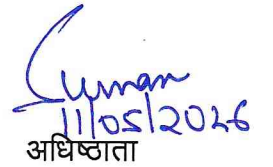 Suman
11/05/2026
अधिष्ठाता